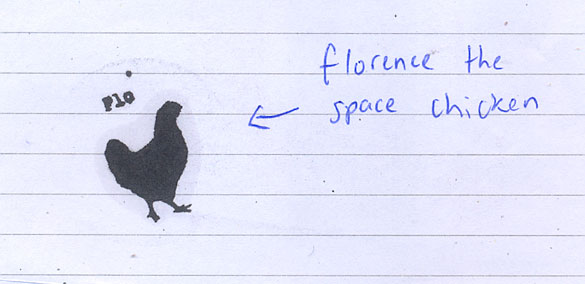 Flo
florence the
space chicken